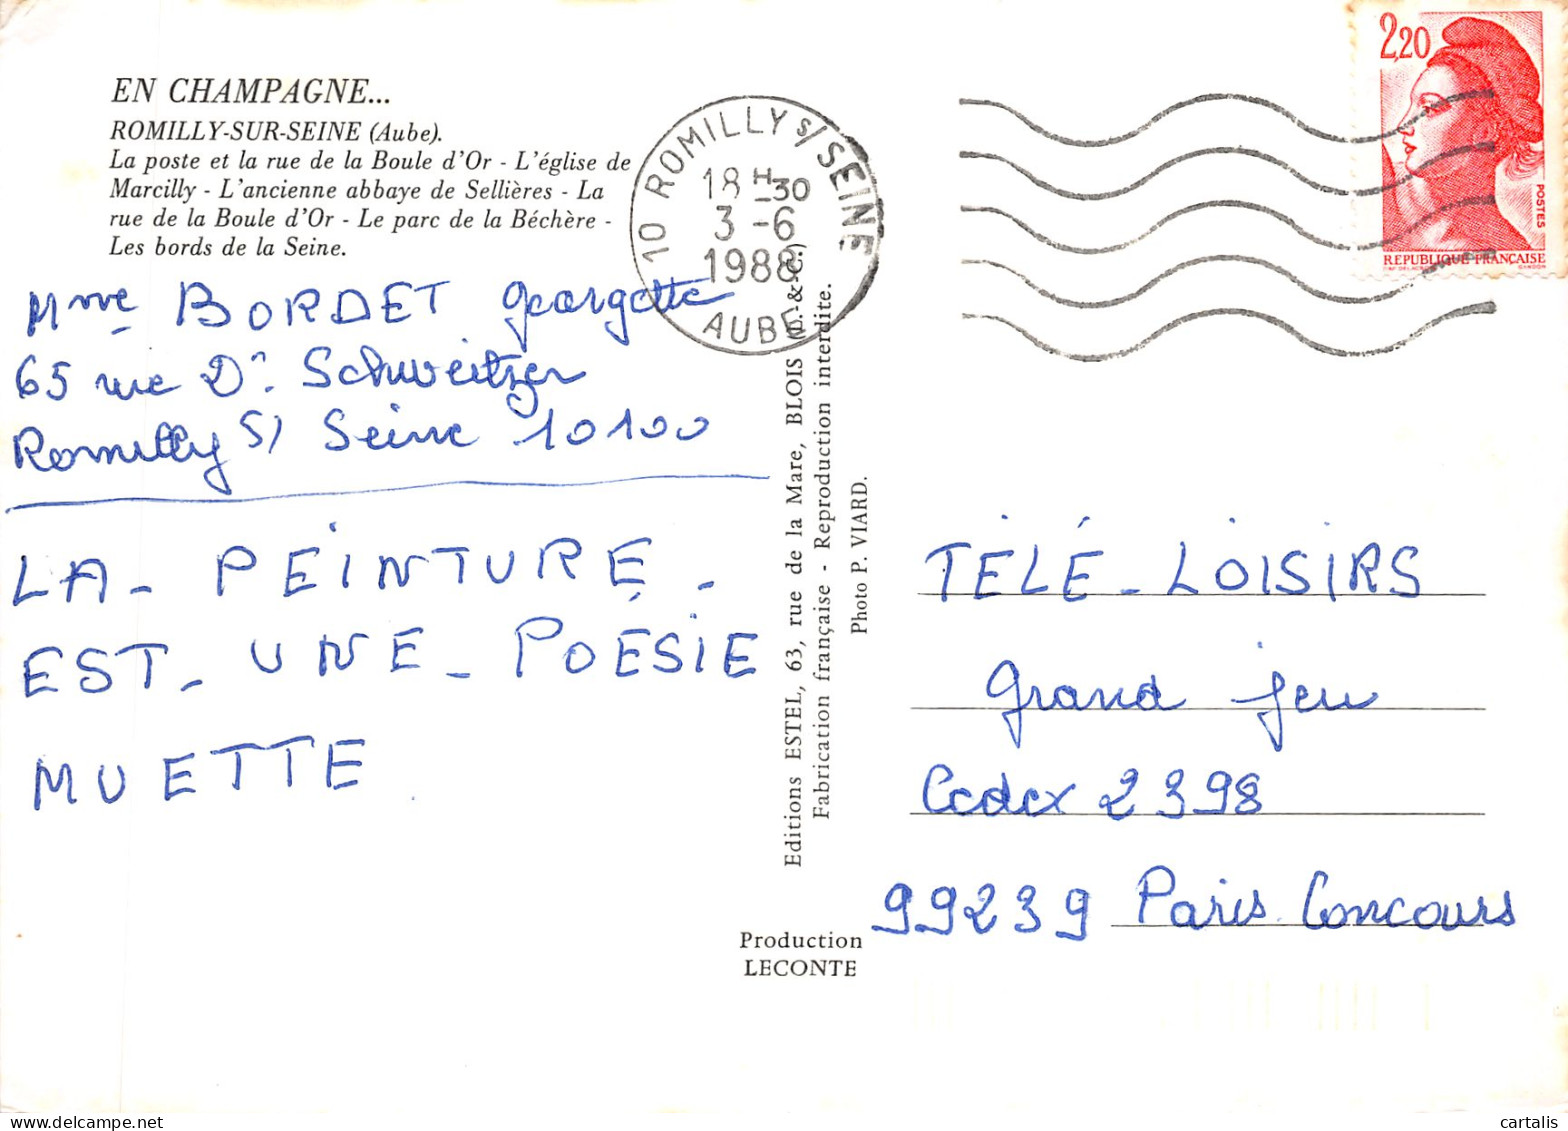 EN CHAMPAGNE...
ROMILLY-SUR-SEINE (Aube).
La poste et la rue de la Boule d'Or - L'église de
Marcilly - L'ancienne abbaye de Sellières - La
rue de la Boule d'Or - Le parc de la Béchère -
Les bords de la Seine.
Mme BORDET Georgette
65 rue Dr. Schweitzer
Romilly S/ Seine 10100
LA - PEINTURE -
EST - UNE - POÉSIE
MUETTE.
10 ROMILLY S/ SEINE
18H30
3-6
1988
AUBE
Editions ESTEL, 63, rue de la Mare, BLOIS (L. & C.)
Fabrication française - Reproduction interdite.
Photo P. VIARD.
Production
LECONTE
2,20
POSTES
REPUBLIQUE FRANÇAISE
GANDON
TÉLÉ - LOISIRS
Grand Jeu
Cedex 2398
99239 Paris Concours
cartalis